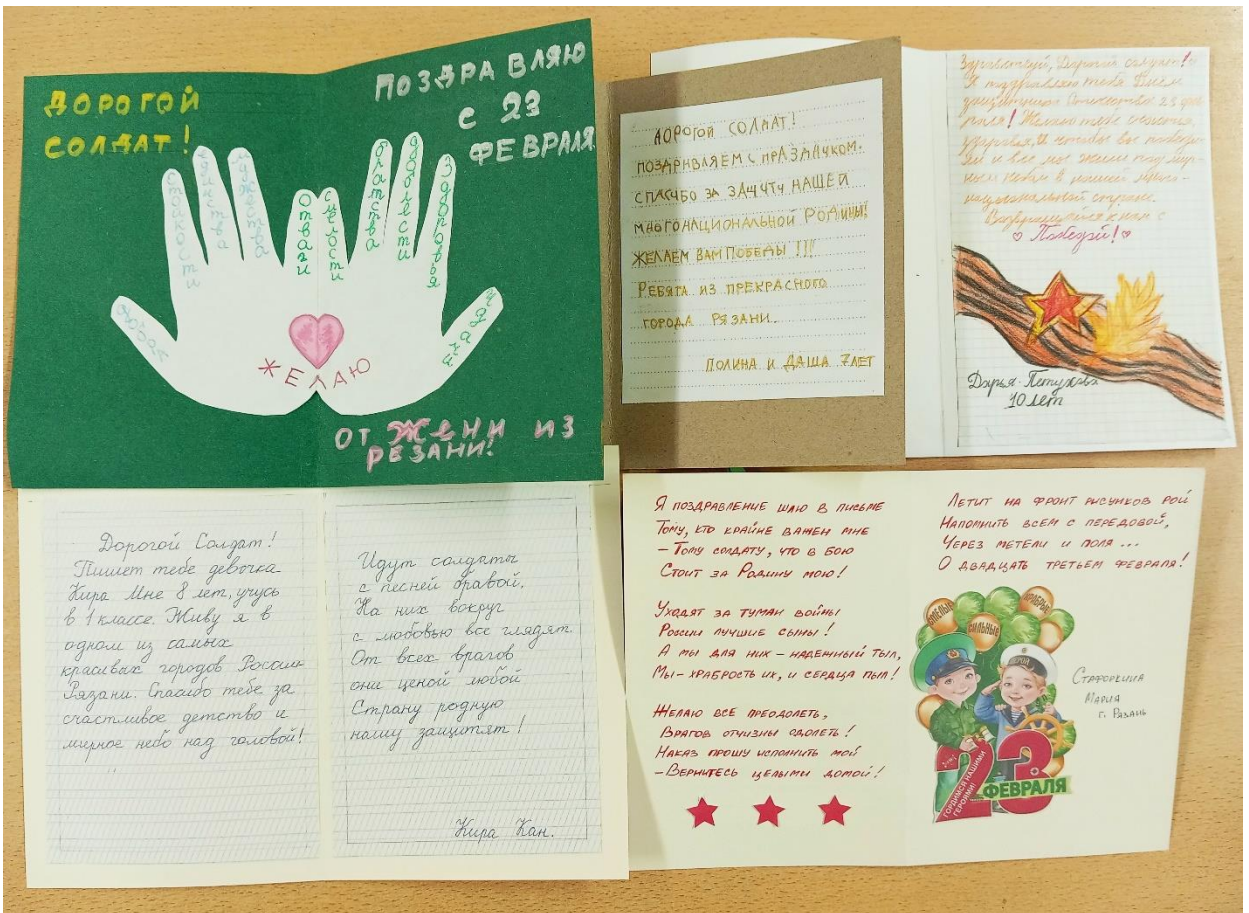 ДОРОГОЙ
СОЛДАТ!
ПОЗДРАВЛЯЮ
С 23
ФЕВРАЛЯ
добра
стойкости
единства
мужества
отваги
смелости
братства
доблести
здоровья
удачи
ЖЕЛАЮ
ОТ ЖЕНИ ИЗ
РЕЗАНИ!
ДОРОГОЙ СОЛДАТ!
ПОЗДРАВЛЯЕМ С ПРАЗДНИЧКОМ.
СПАСИБО ЗА НАШЕЙ
МНОГОНАЦИОНАЛЬНОЙ РОДИНЫ!
ЖЕЛАЕМ ВАМ ПОБЕДЫ !!!
РЕБЯТА ИЗ ПРЕКРАСНОГО
ГОРОДА РЯЗАНИ.
ПОЛИНА И ДАША 7 ЛЕТ
Здравствуй, Дорогой солдат!
Я поздравляю тебя Днём
защитника Отечества 23 фев-
раля! Желаю тебе счастья,
здоровья, И чтобы вы победи-
ли и все мы жили под мир-
ным небом в нашей много-
национальной стране.
Возвращайся к нам с
Победой!
Дарья Петухова
10 лет
Дорогой Солдат!
Пишет тебе девочка
Кира Мне 8 лет, учусь
в 1 классе. Живу я в
одном из самых
красивых городов России-
Рязани. Спасибо тебе за
счастливое детство и
мирное небо над головой!
Идут солдаты
с песней бравой,
На них вокруг
с любовью все глядят.
От всех врагов
они ценой любой
Страну родную
нашу защитят!
Кира Кан.
Я ПОЗДРАВЛЕНИЕ ШЛЮ В ПИСЬМЕ
ТОМУ, КТО КРАЙНЕ ВАЖЕН МНЕ
– ТОМУ СОЛДАТУ, ЧТО В БОЮ
СТОИТ ЗА РОДИНУ МОЮ!
УХОДЯТ ЗА ТУМАН ВОЙНЫ
РОССИИ ЛУЧШИЕ СЫНЫ!
А МЫ ДЛЯ НИХ – НАДЕЖНЫЙ ТЫЛ,
МЫ – ХРАБРОСТЬ ИХ, И СЕРДЦА ПЫЛ!
ЖЕЛАЮ ВСЁ ПРЕОДОЛЕТЬ,
ВРАГОВ ОТЧИЗНЫ ОДОЛЕТЬ!
НАКАЗ ПРОШУ ИСПОЛНИТЬ МОЙ
– ВЕРНИТЕСЬ ЦЕЛЫМИ ДОМОЙ!
ЛЕТИТ НА ФРОНТ РИСУНКОВ РОЙ
НАПОМНИТЬ ВСЕМ С ПЕРЕДОВОЙ,
ЧЕРЕЗ МЕТЕЛИ И ПОЛЯ ...
О ДВАДЦАТЬ ТРЕТЬЕМ ФЕВРАЛЯ!
СМЕЛЫЕ
СИЛЬНЫЕ
ХРАБРЫЕ
ГЕРОЙ
23
ФЕВРАЛЯ
ГОРДИМСЯ НАШИМИ
ГЕРОЯМИ!
СТАФОРКИНА
МАРИЯ
Г. РЯЗАНЬ